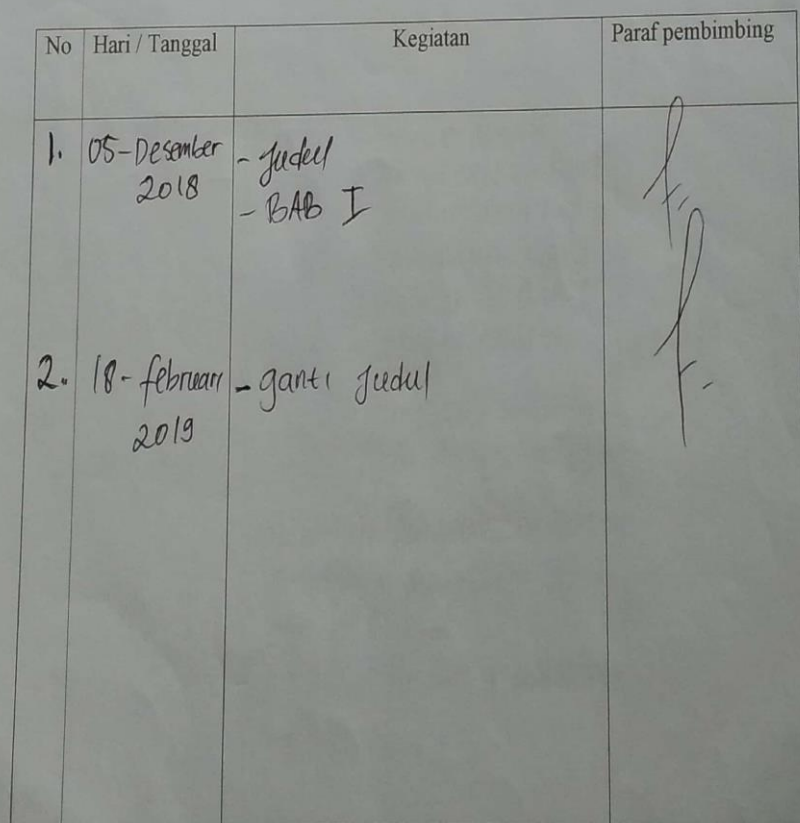 No Hari / Tanggal Kegiatan Paraf pembimbing
1. 05-Desember - Judul
2018 - BAB I
2. 18-februari - ganti Judul
2019